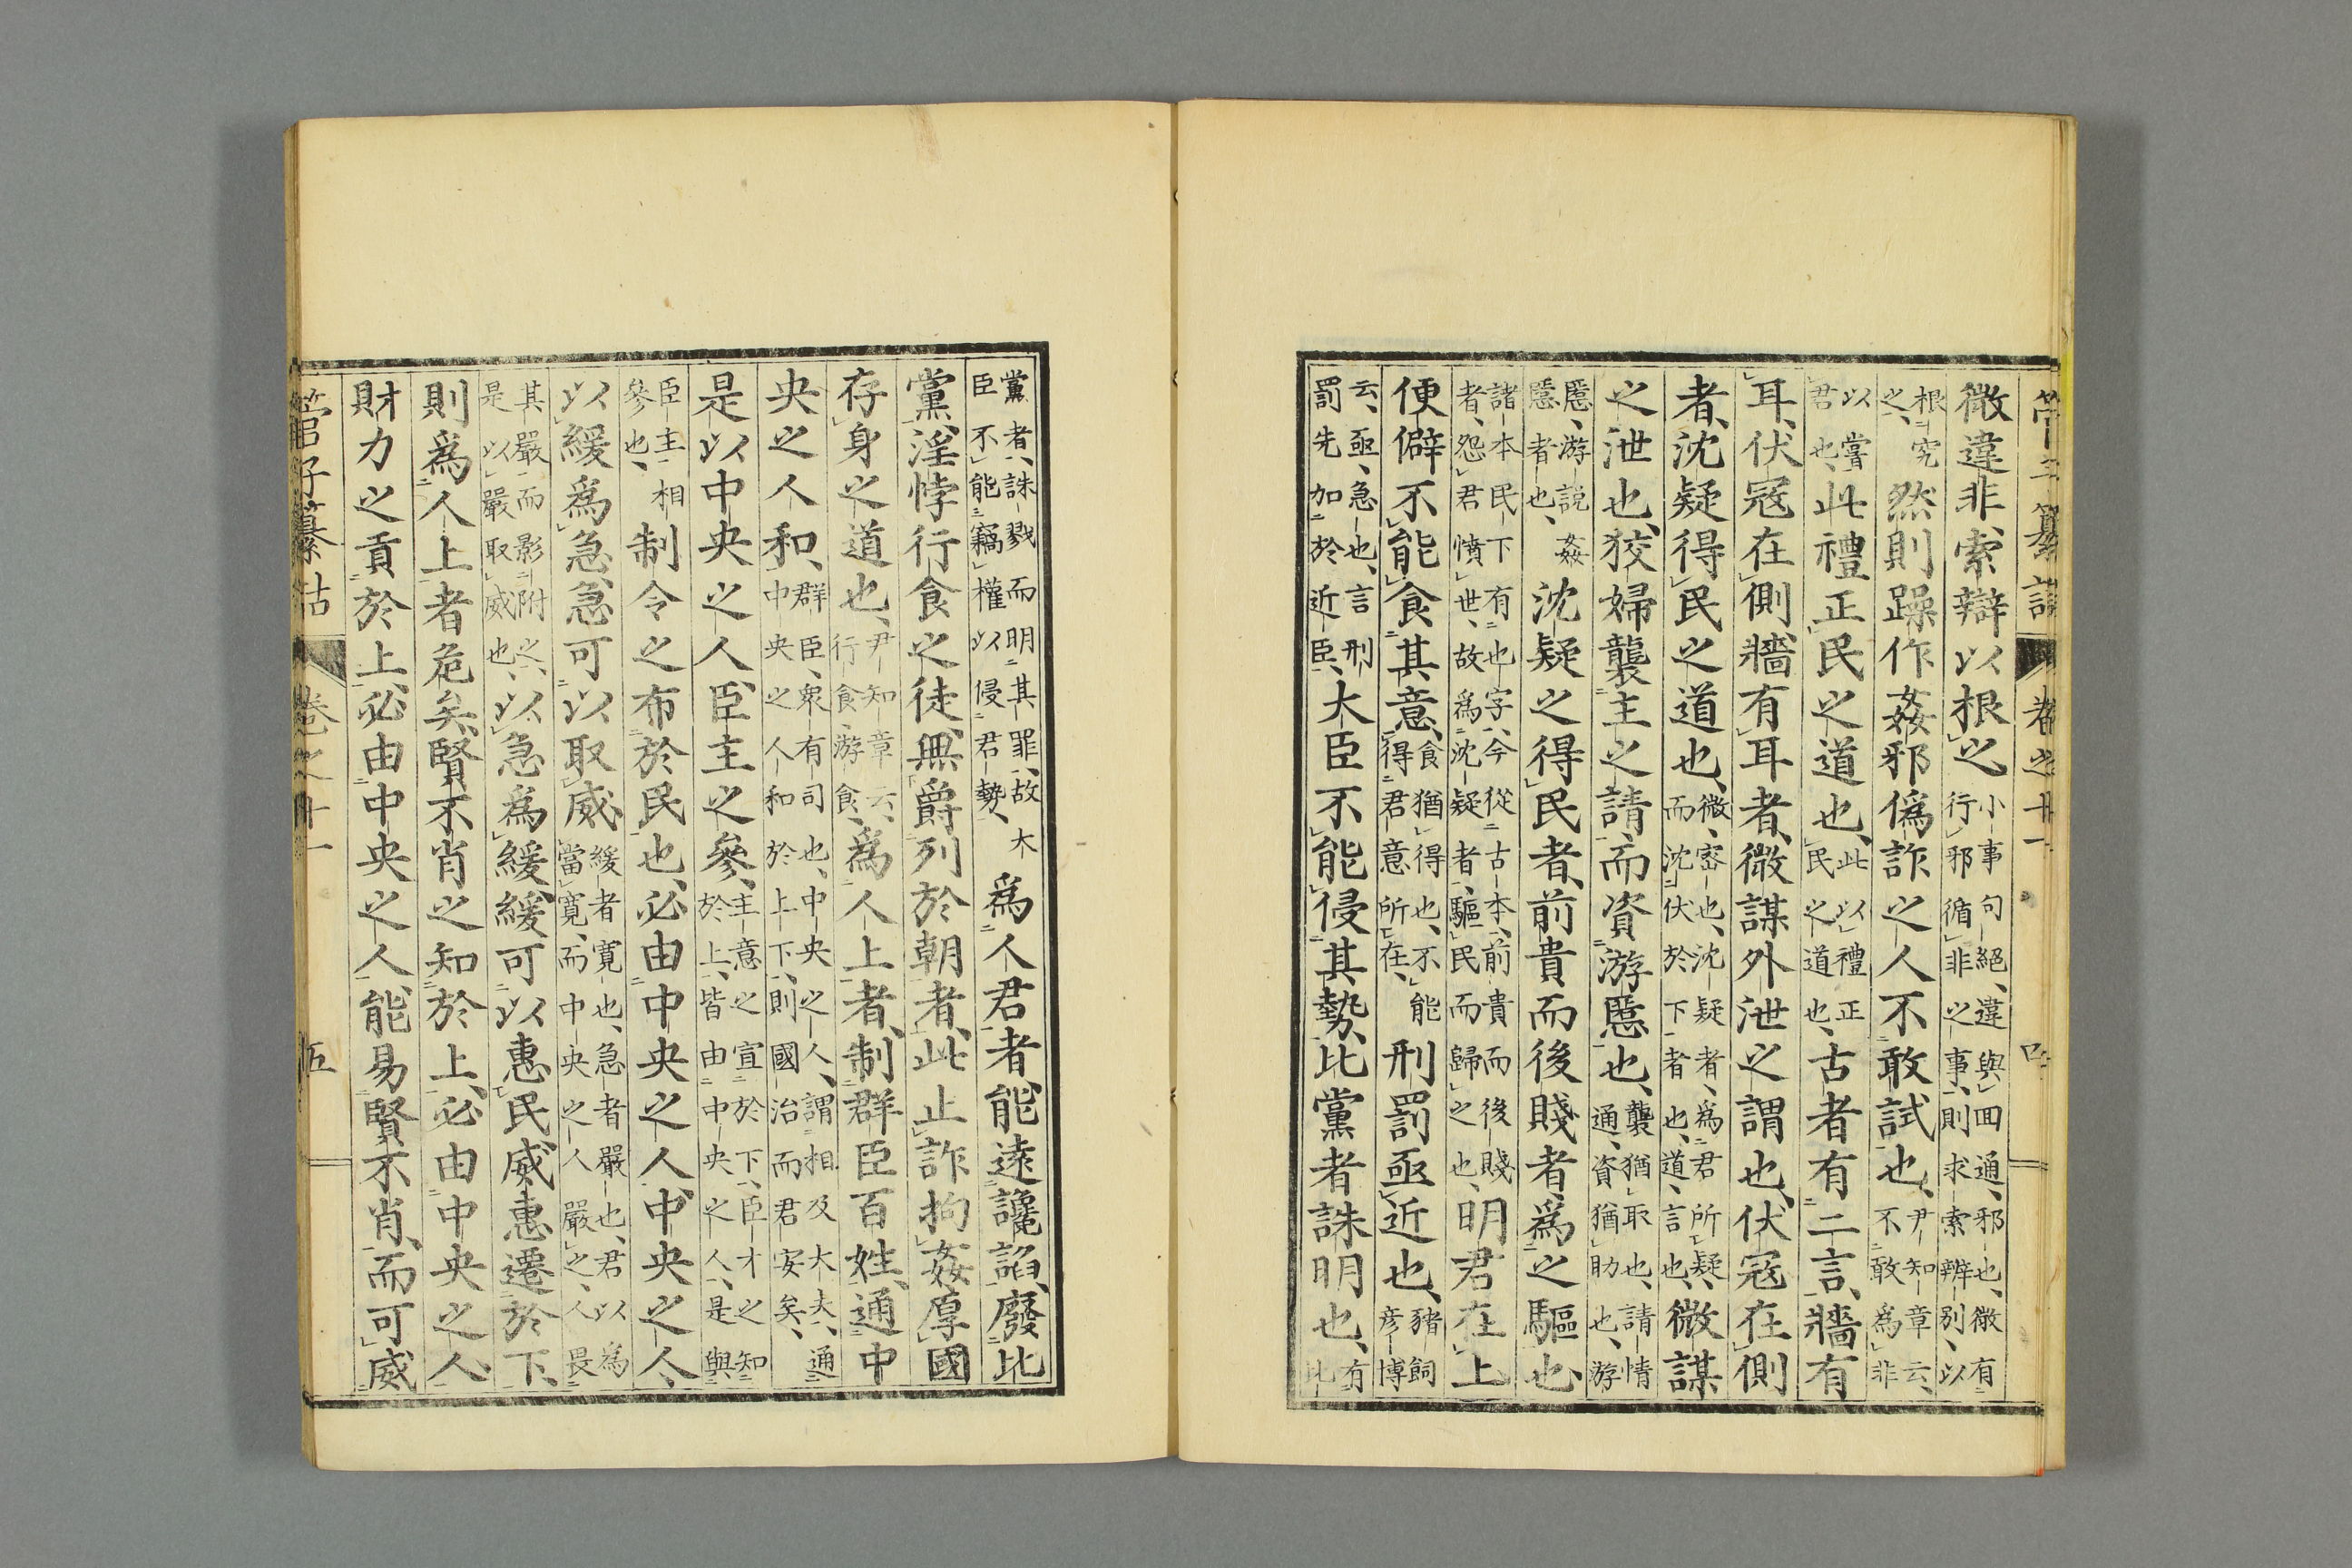 管子纂詁 卷之十一 四
微違非索辯以根之
小事句絕、違與回通、邪也、微有
行邪循非之事、則求索辨別、以
根究
之、
然則躁作姦邪僞詐之人不敢試也、
尹知章云、
不敢爲非
以嘗
君也、
此禮正民之道也、
此以禮正
民之道也、
古者有二言、牆有
耳、伏寇在側牆有耳者、微謀外泄之謂也、伏寇在側
者、沈疑得民之道也、
微、密也、沈疑者、爲君所疑、
而沈伏於下者也、道、言也、
微謀
之泄也、狡婦襲主之請、而資游慝也、
襲猶取也、請情
通、資猶助也、游
慝、游說姦
慝者也、
沈疑之得民者、前貴而後賤者、爲之驅也、
諸本民下有也字、今從古本、前貴而後賤
者、怨君憤世、故爲沈疑者、驅民而歸之也、
明君在上
便僻不能食其意、
食猶得也、不能
得君意所在、
刑罰亟近也、
豬飼
彥博
云、亟、急也、言刑
罰先加於近臣、
大臣不能侵其勢、比黨者誅明也、
有
比
黨者、誅戮而明其罪、故大
臣不能竊權以侵君勢、
爲人君者、能遠讒諂、廢比
黨、淫悖行食之徒、無爵列於朝者、此止詐拘姦厚國
存身之道也、
尹知章云、
行食、游食、
爲人上者、制群臣百姓、通中
央之人和、
群臣、衆有司也、中央之人、謂相及大夫、通
中央之人和於上下、則國治而君安矣、
是以中央之人、臣主之參、
主意之宣於下、臣才之知
於上、皆由中央之人、是與
臣主相
參也、
制令之布於民也、必由中央之人、中央之人
以緩爲急、急可以取威、
緩者寬也、急者嚴也、君以爲
當寬、而中央之人嚴之、人畏
其嚴而影附之、
是以嚴取威也、
以急爲緩、緩可以惠民、威惠遷於下、
則爲人上者危矣、賢不肖之知於上、必由中央之人、
財力之貢於上、必由中央之人、能易賢不肖、而可威
管子纂詁 卷之十一 五